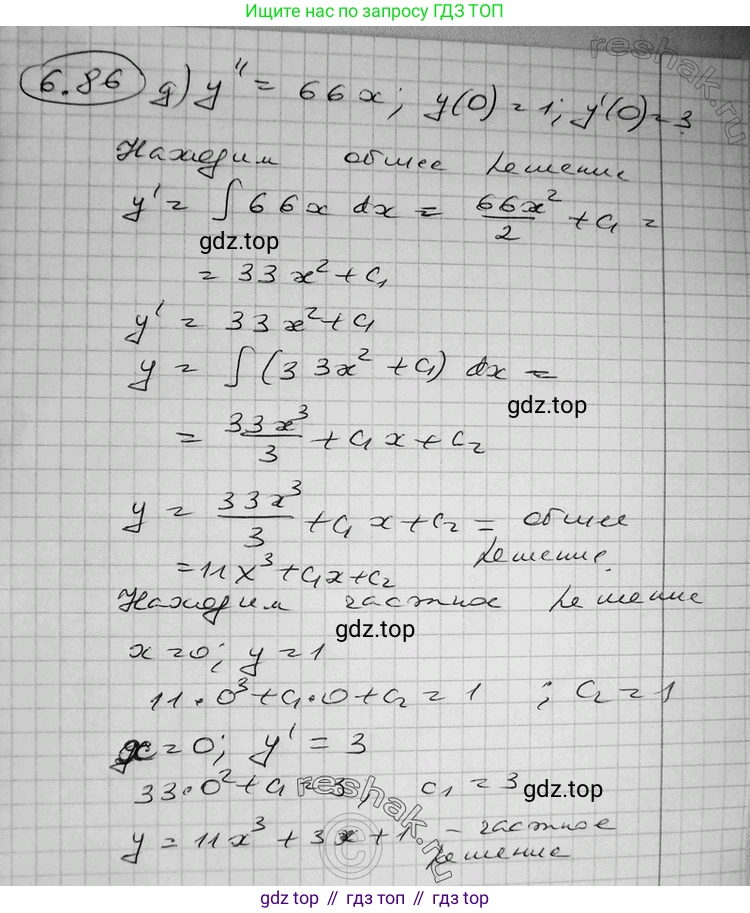 Ищите нас по запросу ГДЗ ТОП
reshak.ru
6.86 д) y'' = 66x; y(0) = 1; y'(0) = 3
Находим общее решение
y' = ∫ 66x dx = 66x²/2 + C₁ =
gdz.top
= 33x² + C₁
y' = 33x² + C₁
y = ∫ (33x² + C₁) dx =
gdz.top
= 33x³/3 + C₁x + C₂
y = 33x³/3 + C₁x + C₂ = общее
решение
= 11x³ + C₁x + C₂
Находим частное решение
gdz.top
x = 0; y = 1
11·0³ + C₁·0 + C₂ = 1 ; C₂ = 1
x = 0; y' = 3
33·0² + C₁ = 3, C₁ = 3
gdz.top
reshak.ru
©
y = 11x³ + 3x + 1 – частное
решение
gdz.top // гдз.топ // gdz.top